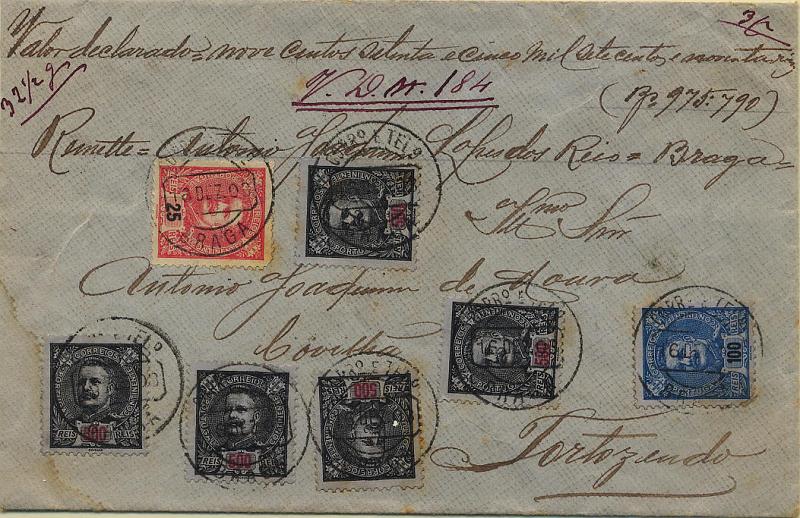 3/2
Valor declarado = nove centos setenta e cinco mil sete centos e noventa reis
32 1/2 g
V. D. N. 184
(Rs 975:790)
Remette = Antonio Joaquim Lopes dos Reis = Braga =
Illmo Snr
Antonio Joaquim de Moura
Covilhã
Tortozendo
25
CORRº E TELº
6 DEZ 0
BRAGA
CORREIOS
500
CORREIOS
PORTUGAL
500
100
REIS 500 REIS
CORREIOS
REIS 500 REIS
500 REIS
CORREIOS